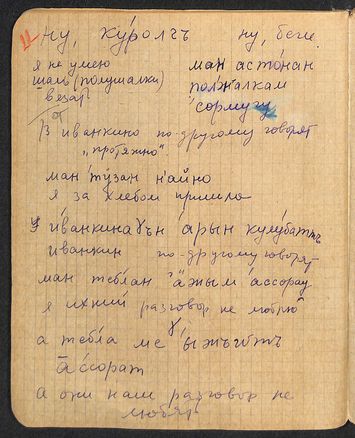 11 ну, ку́ролгъ ну, беги.
я не умею ман асто́нан
шаль (полушалки) полжалкам
вязать сормугу
В иванкино по-другому говорят
„протяжно“.
ман тӯзан н'айно
я за хлебом пришла
и́ванкинаɣън а́рын кулу́батть
иванкин по-другому говорят
ман тебла́н а́жым а́ссорау
я ихний разговор не люблю
а тебла ме ɣы́жъгътъ
а̄ссорат
а они наш разговор не
любят